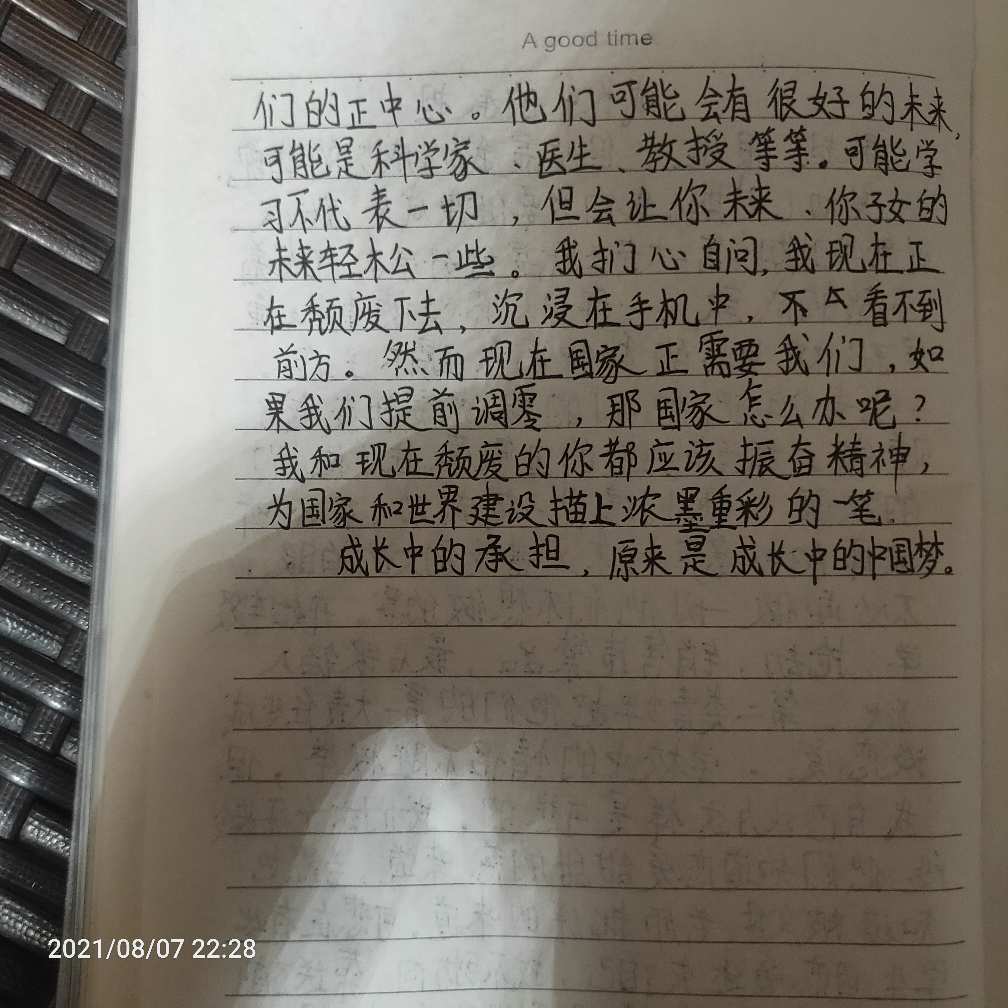 A good time
们的正中心。他们可能会有很好的未来,
可能是科学家、医生、教授等等。可能学
习不代表一切，但会让你未来、你子女的
未来轻松一些。我扪心自问,我现在正
在颓废下去，沉浸在手机中，不 看不到
前方。然而现在国家正需要我们，如
果我们提前调零，那国家怎么办呢？
我和现在颓废的你都应该振奋精神，
为国家和世界建设描上浓墨重彩的一笔.
成长中的承担，原来是成长中的中国梦。
2021/08/07 22:28